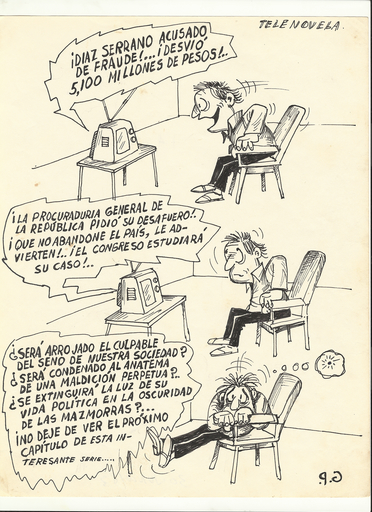 TELENOVELA.
¡DIAZ SERRANO ACUSADO
DE FRAUDE!...¡DESVIÓ
5,100 MILLONES DE PESOS!..
¡LA PROCURADURIA GENERAL DE
LA REPÚBLICA PIDIÓ SU DESAFUERO!.
¡QUE NO ABANDONE EL PAÍS, LE AD-
VIERTEN!..¡EL CONGRESO ESTUDIARÁ
SU CASO!..
¿SERÁ ARROJADO EL CULPABLE
DEL SENO DE NUESTRA SOCIEDAD?
¿SERÁ CONDENADO AL ANATEMA
DE UNA MALDICIÓN PERPETUA?..
¿SE EXTINGUIRÁ LA LUZ DE SU
VIDA POLÍTICA EN LA OSCURIDAD
DE LAS MAZMORRAS?...
¡NO DEJE DE VER EL PRÓXIMO
CAPÍTULO DE ESTA IN-
TERESANTE SERIE.....